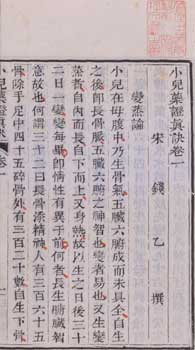 小兒藥證眞訣卷一
宋 錢 乙 撰
變蒸論
小兒在母腹中乃生骨氣五臟六腑成而未具全自生
之後卽長骨脉五臟六腑之神智也變者易也又生變
蒸者自內而長自下而上又身熱故以生之日後三十
二日一變變每畢卽情性有異于前何者長生腑臟智
意故也何謂三十二日長骨添精神人有三百六十五
骨除手足中四十五碎骨外有三百二十數自生下骨
小兒藥證眞訣 卷一